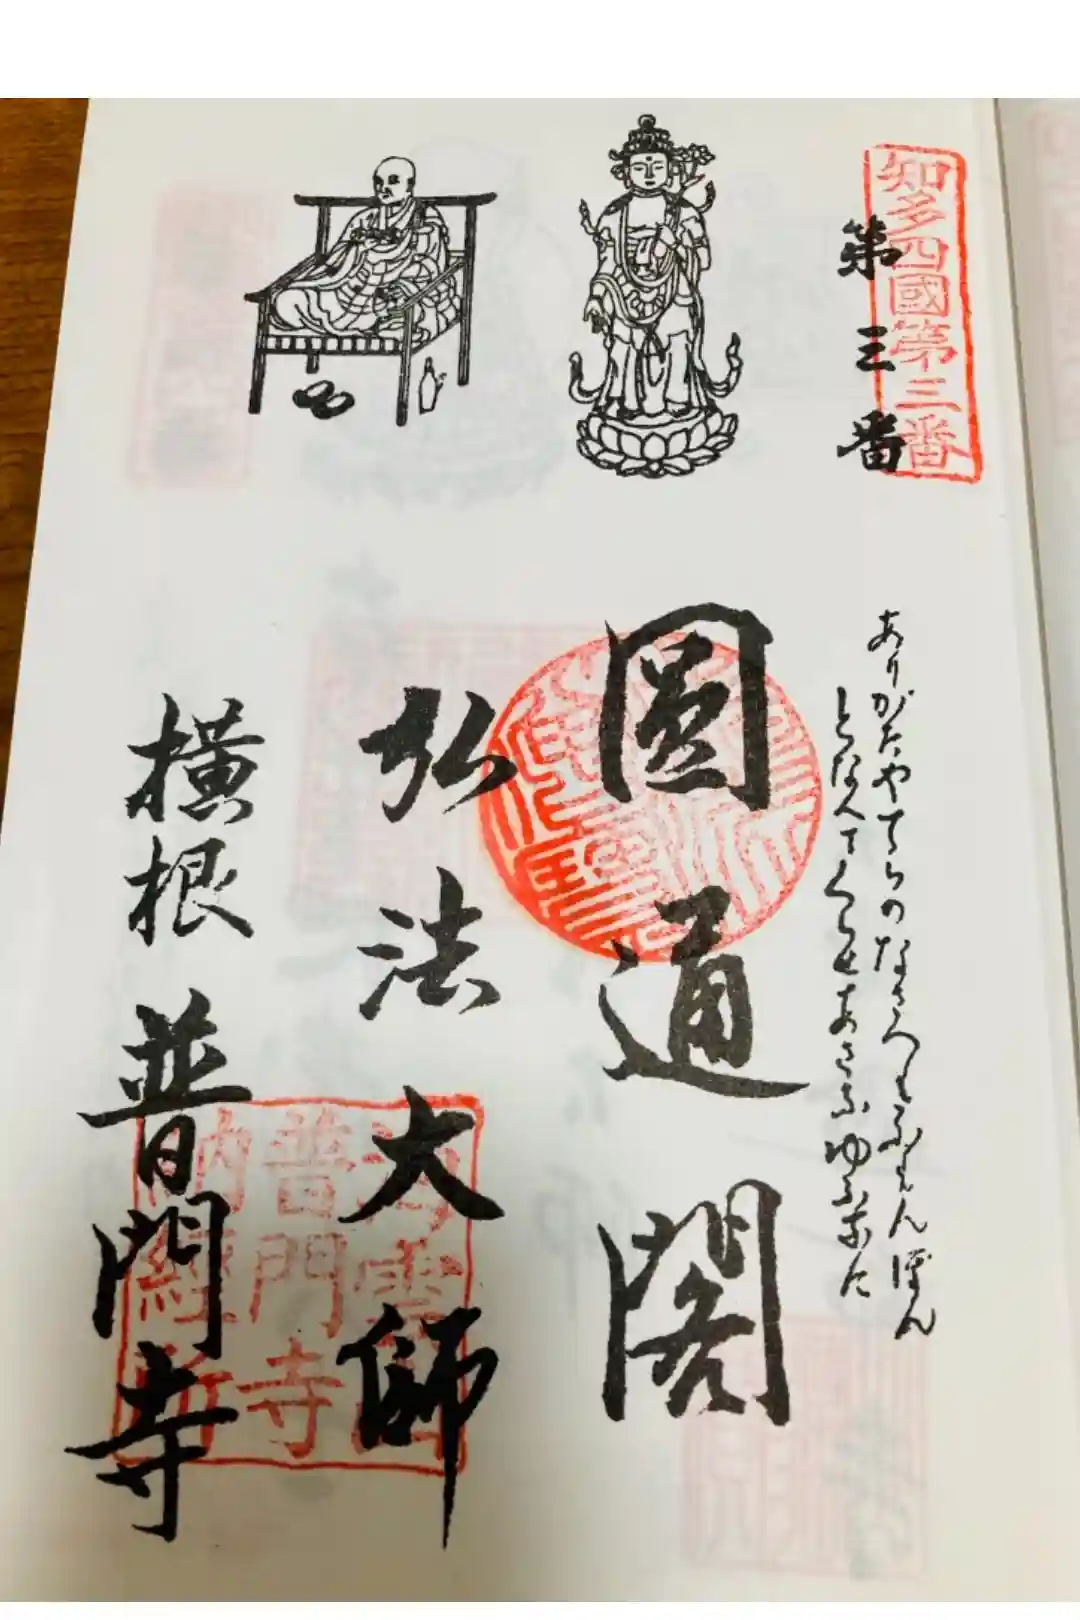 知多四國第三番
第三番
ありがたやてらのなさへもふもんぼん
となへてくらせあさなゆふなに
圓通閣
弘法大師
横根 普門寺
普門寺
納經所